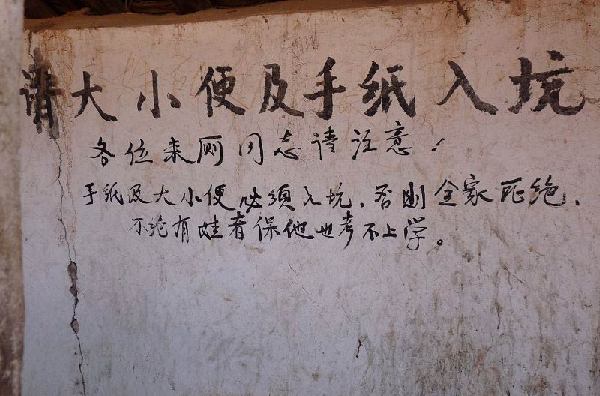 请大小便及手纸入坑
各位来厕同志请注意！
手纸及大小便必须入坑，否则全家死绝、
不绝有娃者保他也考不上学。